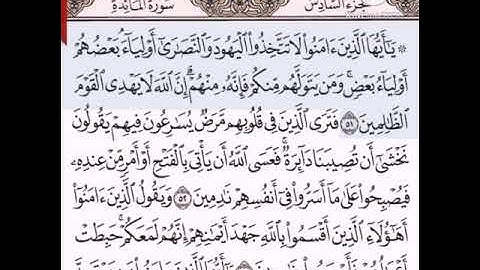 الجزء السادس سورة المائدة
۞ يَٰٓأَيُّهَا ٱلَّذِينَ ءَامَنُوا۟ لَا تَتَّخِذُوا۟ ٱلْيَهُودَ وَٱلنَّصَٰرَىٰٓ أَوْلِيَآءَ بَعْضُهُمْ
أَوْلِيَآءُ بَعْضٍ وَمَن يَتَوَلَّهُم مِّنكُمْ فَإِنَّهُۥ مِنْهُمْ إِنَّ ٱللَّهَ لَا يَهْدِى ٱلْقَوْمَ
ٱلظَّٰلِمِينَ ٥١ فَتَرَى ٱلَّذِينَ فِى قُلُوبِهِم مَّرَضٌ يُسَٰرِعُونَ فِيهِمْ يَقُولُونَ
نَخْشَىٰٓ أَن تُصِيبَنَا دَآئِرَةٌ فَعَسَى ٱللَّهُ أَن يَأْتِىَ بِٱلْفَتْحِ أَوْ أَمْرٍ مِّنْ عِندِهِۦ
فَيُصْبِحُوا۟ عَلَىٰ مَآ أَسَرُّوا۟ فِىٓ أَنفُسِهِمْ نَٰدِمِينَ ٥٢ وَيَقُولُ ٱلَّذِينَ ءَامَنُوٓا۟
أَهَٰٓؤُلَآءِ ٱلَّذِينَ أَقْسَمُوا۟ بِٱللَّهِ جَهْدَ أَيْمَٰنِهِمْ إِنَّهُمْ لَمَعَكُمْ حَبِطَتْ